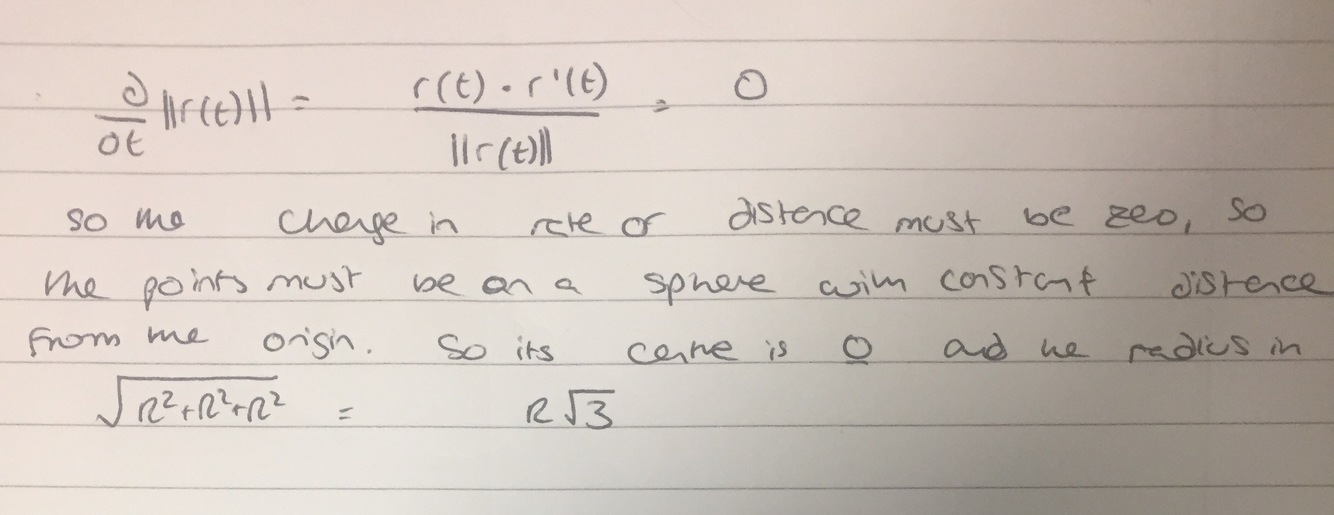 ∂/∂t ||r(t)|| = r(t) · r'(t) / ||r(t)|| = 0
so the change in rate of distance must be zeo, so
the points must be on a sphere with constant distance
from the origin. So its centre is 0 and the radius in
√(R²+R²+R²) = R√3